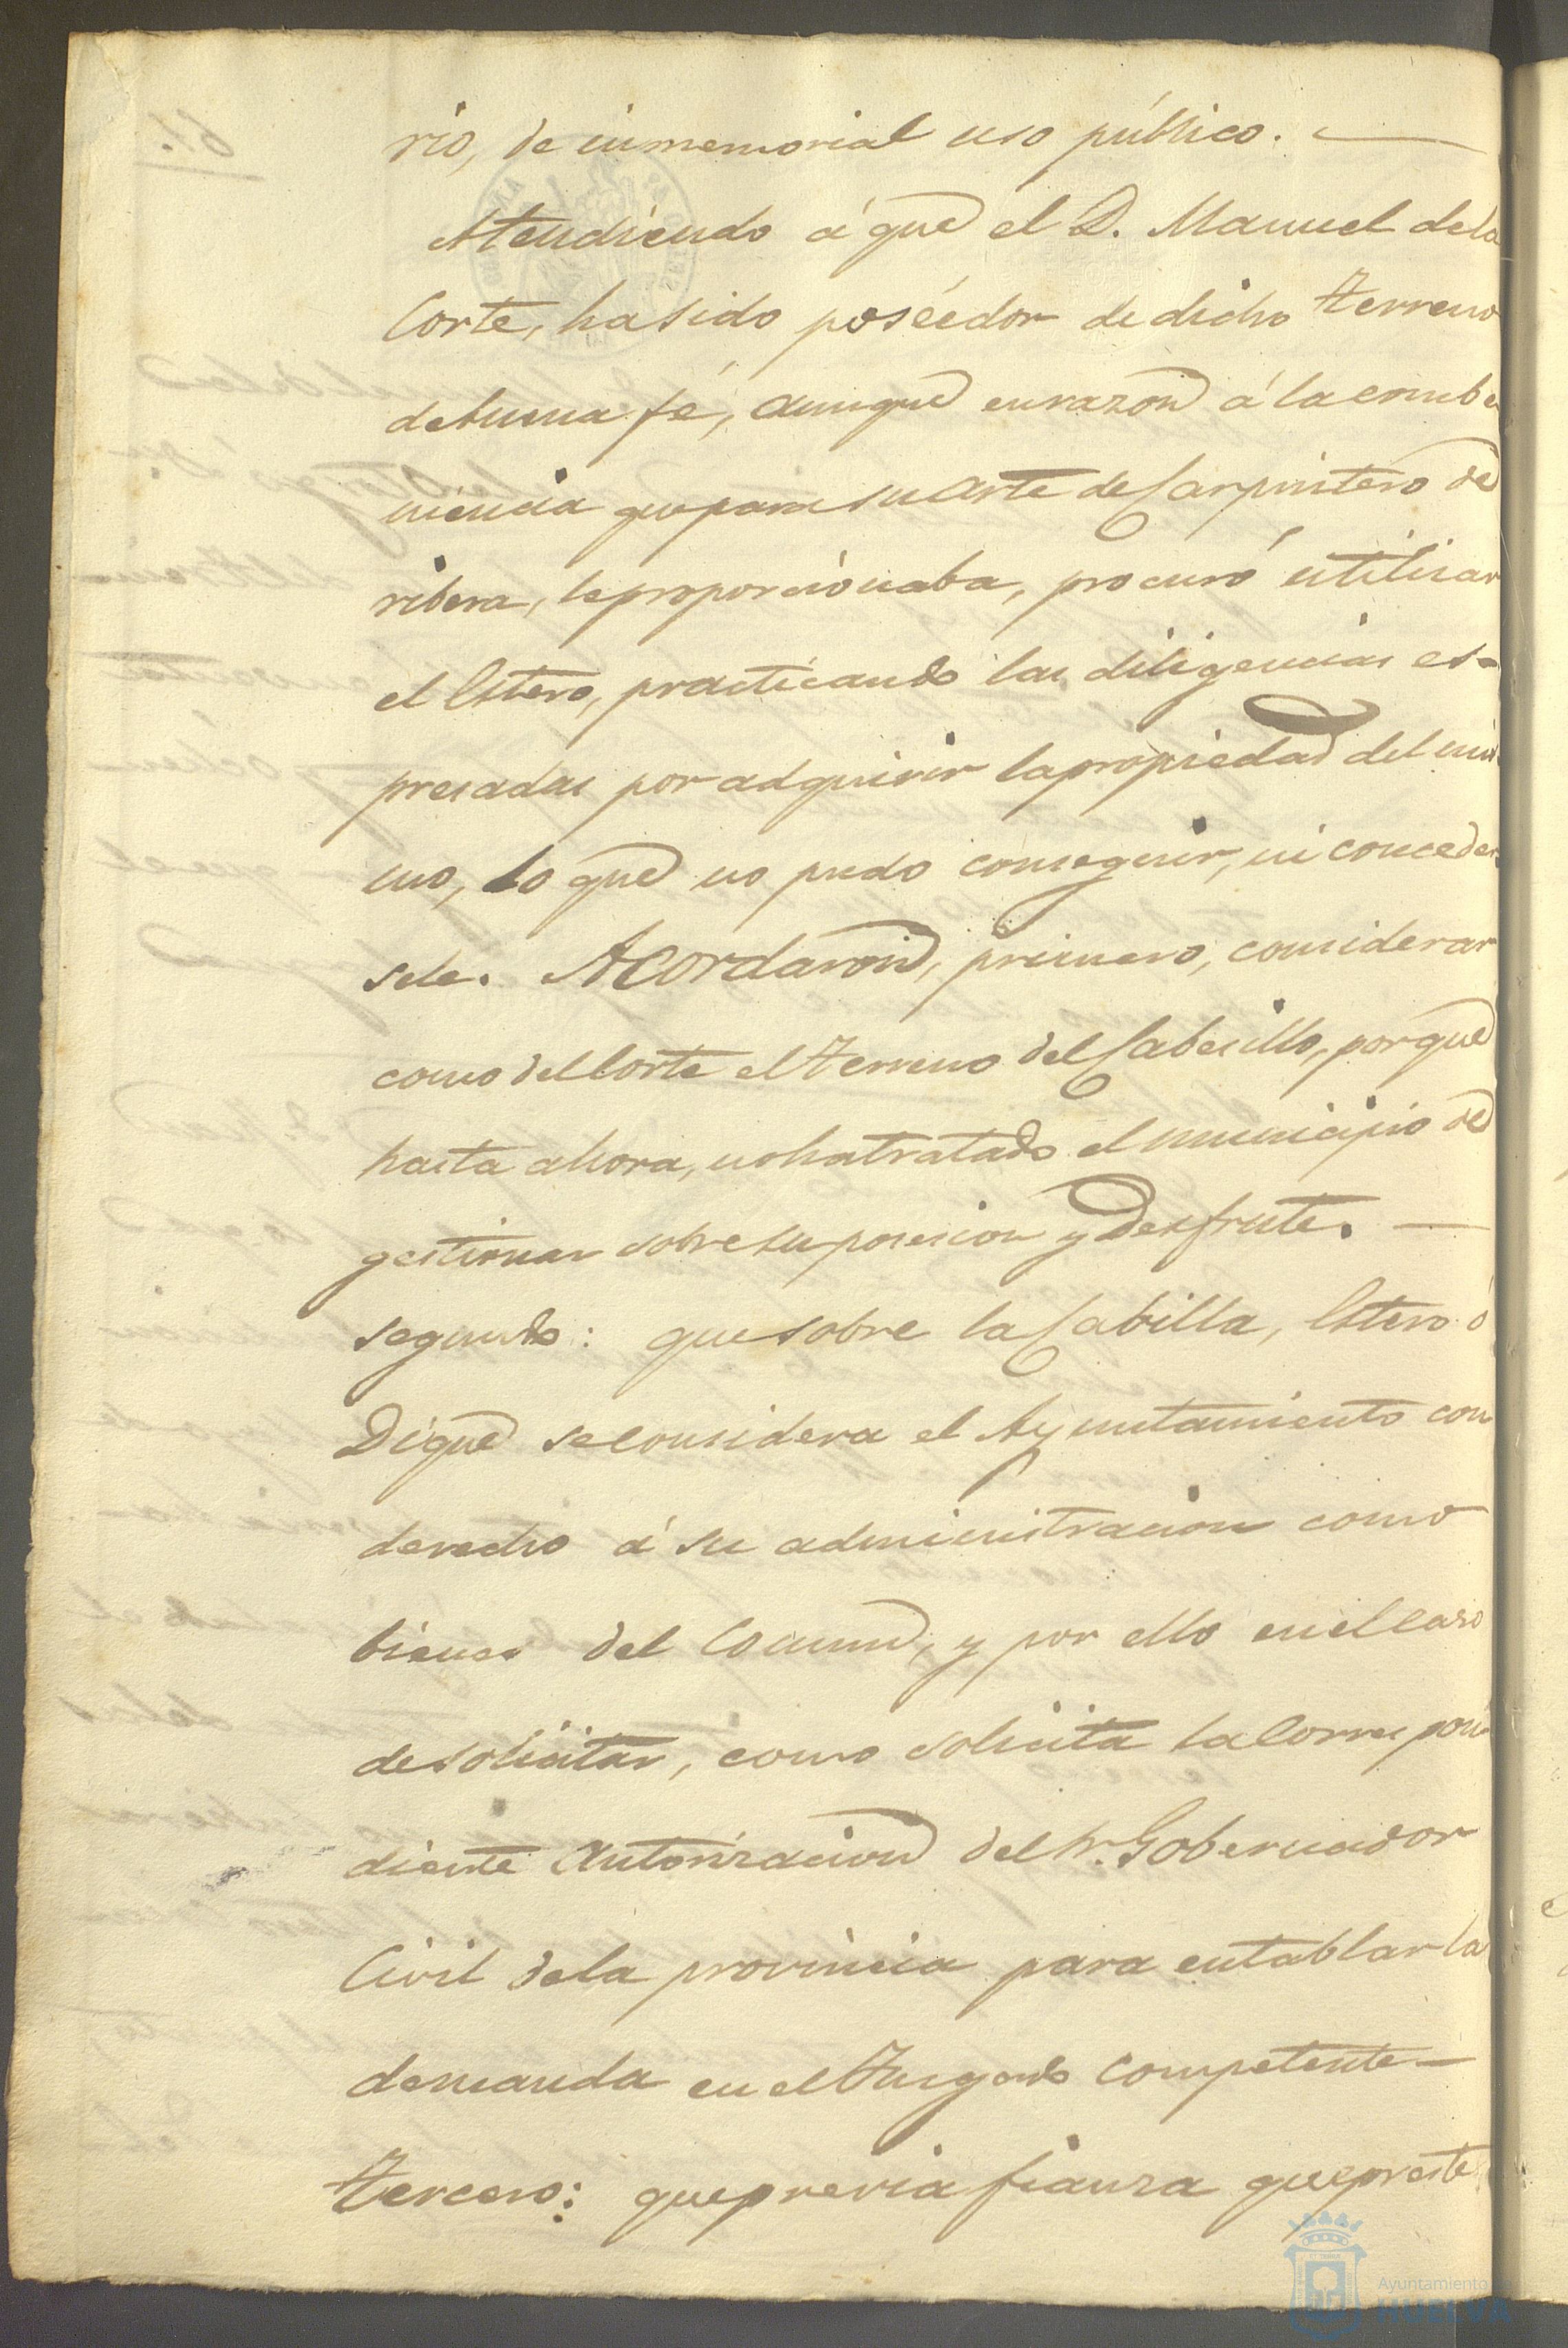 rio, de inmemorial uso público. —
Atendiendo á que el D. Manuel dela
Corte, ha sido poséedor de dicho terreno
de buena fé, aunque en razon á la combe
niencia que para su arte de Carpintero de
ribera, le proporcionaba, procuró utilisar
el Estero, practicando las diligencias es-
presadas por adquirir la propiedad del mis
mo, lo que no pudo conseguir, ni conceder
sele. Acordaron, primero, considerar
como del Corte el terreno del Cabesillo, porque
hasta ahora, no ha tratado el municipio de
gestionar sobre su posesion y Desfrute. —
segundo: que sobre la Cabilla, Estero ó
Dique se considera el Ayuntamiento con
derecho á su administracion como
bienes del Comun, y por ello en el caso
de solicitar, como solicita la Correspon
diente Autorizacion del Sr. Gobernador
Civil dela provincia para entablar la
demanda en el Jusgado competente —
tercero: que previa fianza que preste
Ayuntamiento de
HUELVA